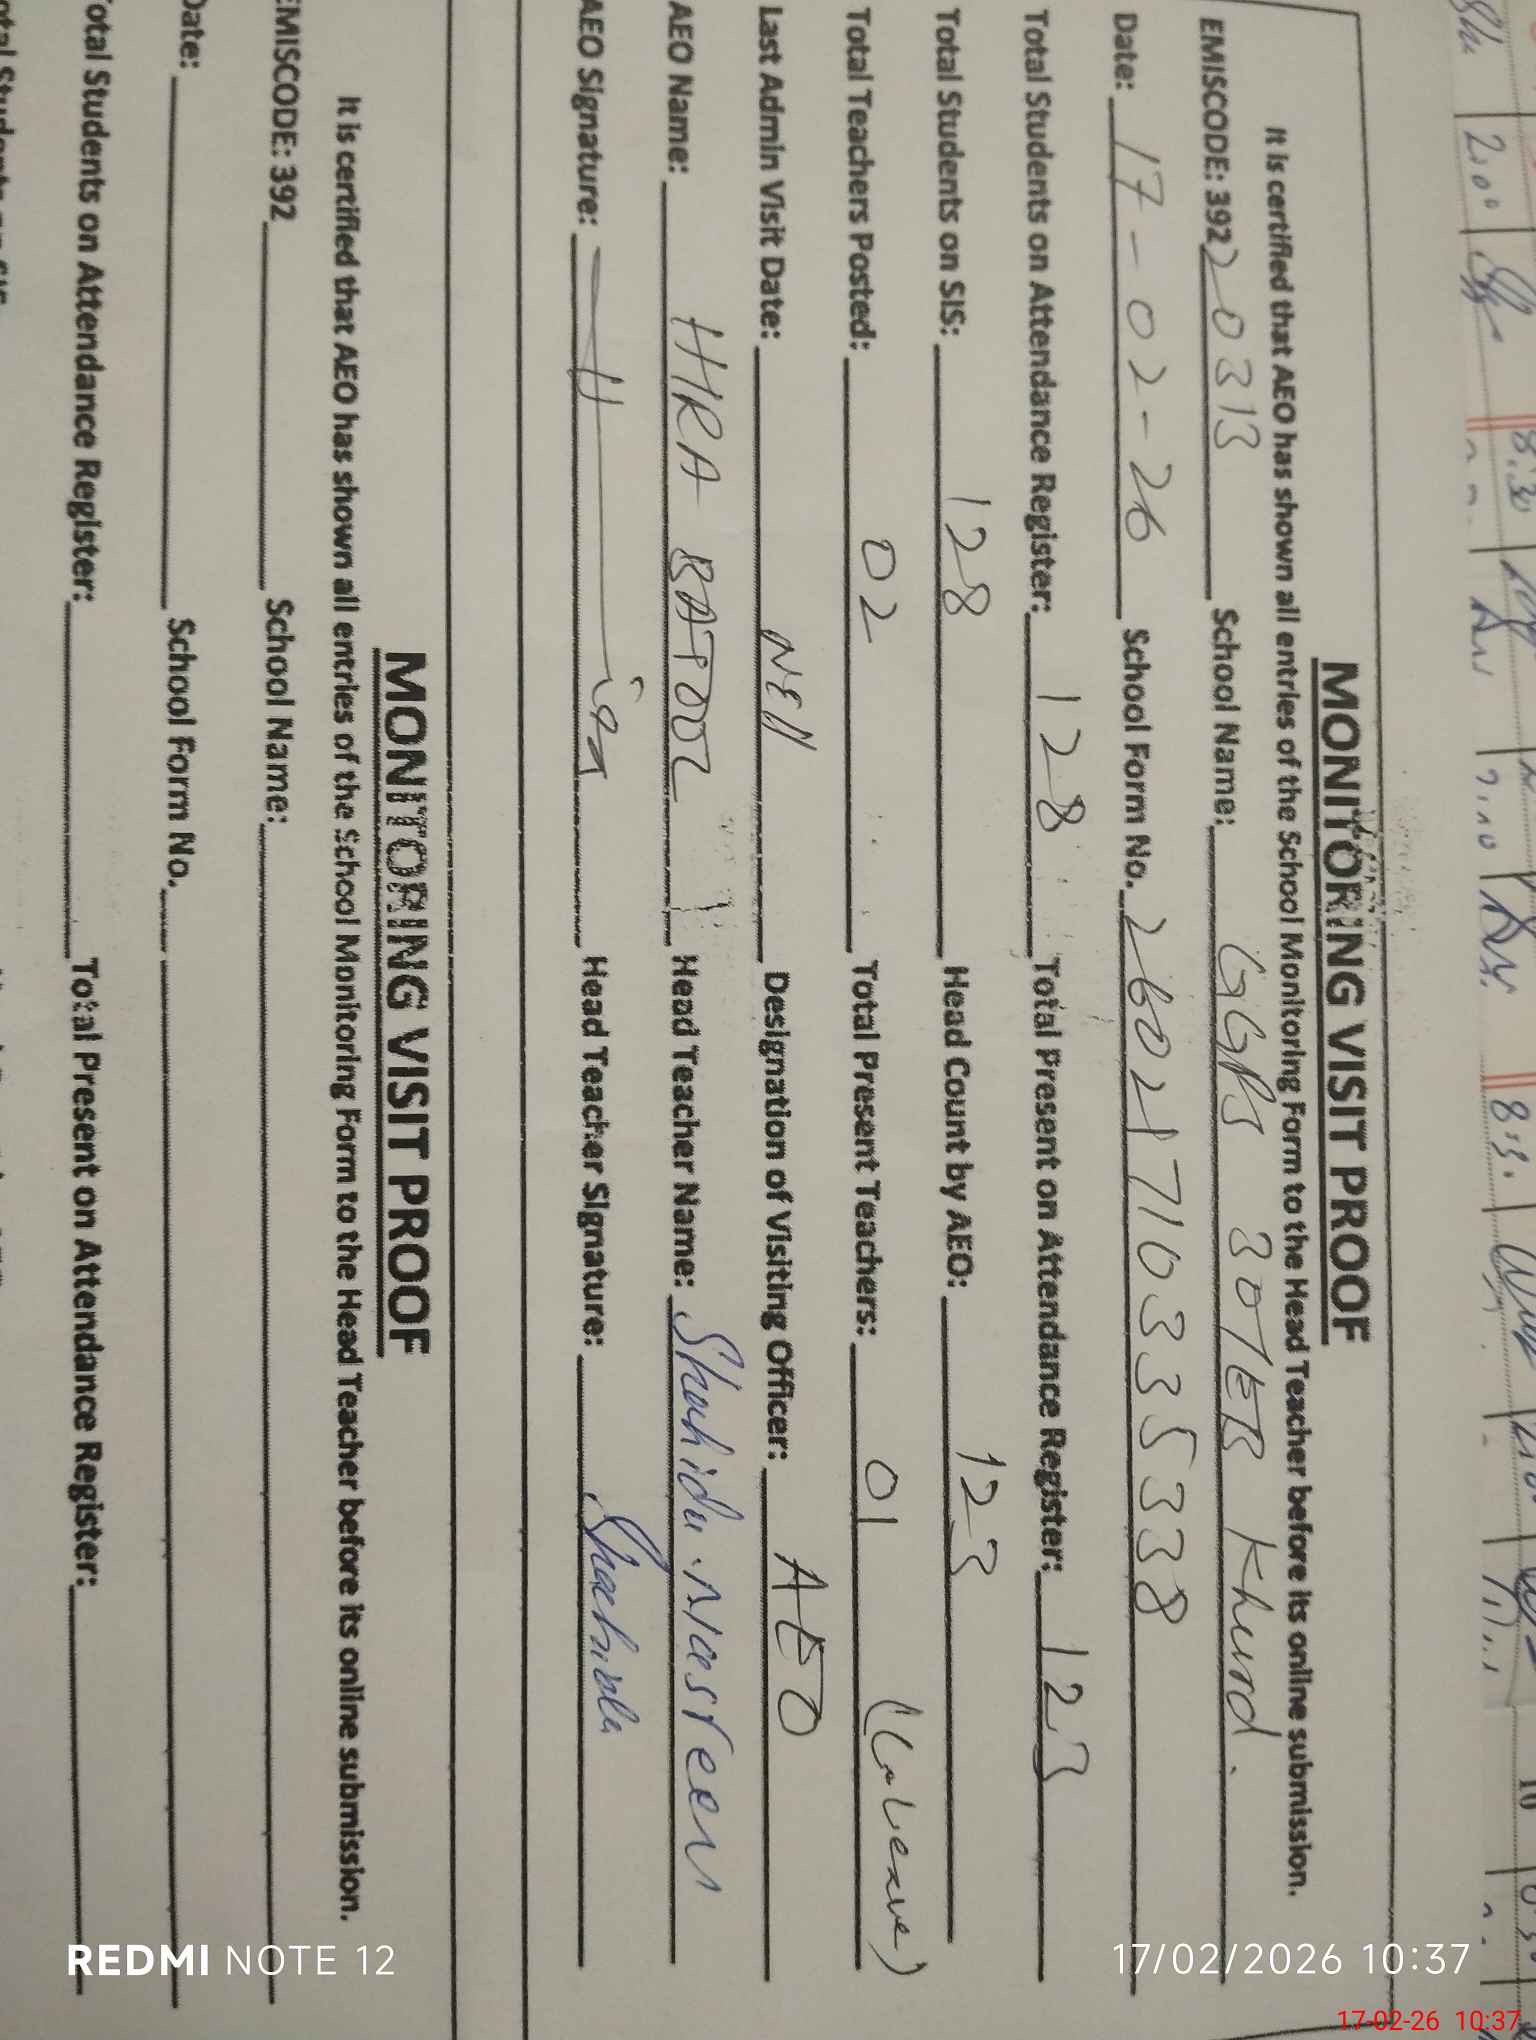 MONITORING VISIT PROOF
It is certified that AEO has shown all entries of the School Monitoring Form to the Head Teacher before its online submission.
EMISCODE: 39220313 School Name: GGPS 307EB Khurd.
Date: 17-02-26 School Form No. 26021710335338
Total Students on Attendance Register: 128 Total Present on Attendance Register: 123
Total Students on SIS: 128 Head Count by AEO: 123
Total Teachers Posted: 02 Total Present Teachers: 01 (Leave)
Last Admin Visit Date: Designation of Visiting Officer: AEO
AEO Name: HIRA BATOOL Head Teacher Name: Shahida Nasreen
AEO Signature: Head Teacher Signature: Shahida
MONITORING VISIT PROOF
It is certified that AEO has shown all entries of the School Monitoring Form to the Head Teacher before its online submission.
EMISCODE: 392 School Name:
Date: School Form No.
Total Students on Attendance Register: Total Present on Attendance Register:
REDMI NOTE 12
17/02/2026 10:37
17-02-26 10:37